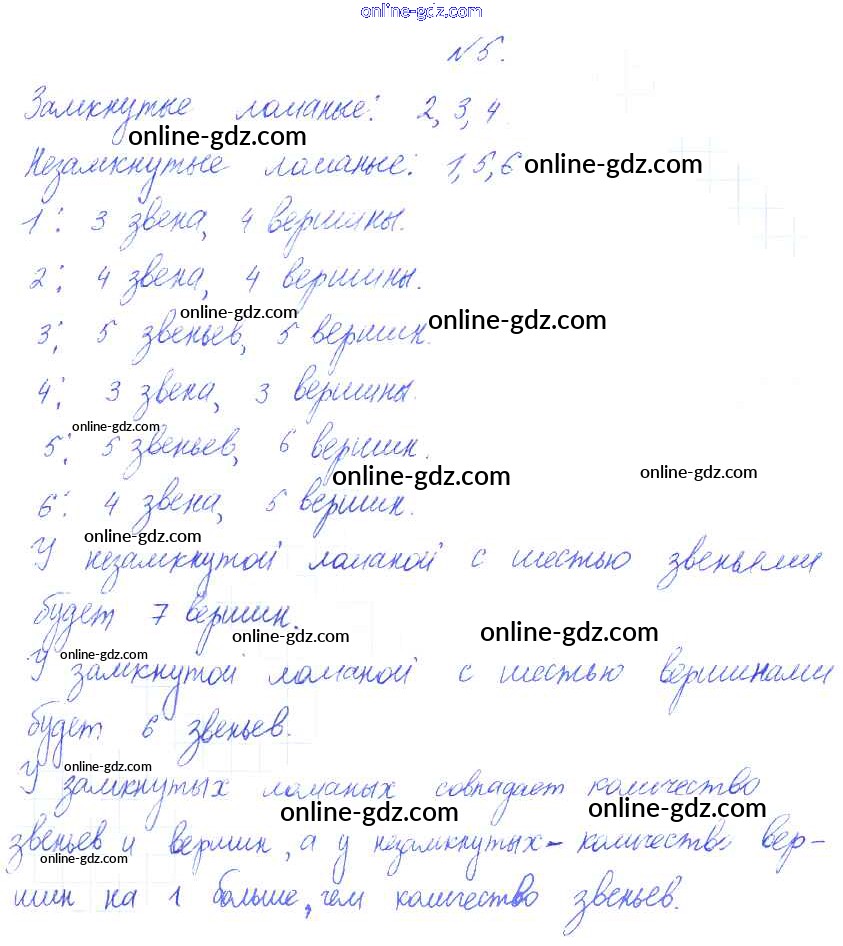 online-gdz.com
№5.
Замкнутые ломаные: 2, 3, 4.
online-gdz.com
Незамкнутые ломаные: 1, 5, 6 online-gdz.com
1: 3 звена, 4 вершины.
2: 4 звена, 4 вершины.
online-gdz.com online-gdz.com
3: 5 звеньев, 5 вершин.
4: 3 звена, 3 вершины.
online-gdz.com
5: 5 звеньев, 6 вершин.
online-gdz.com online-gdz.com
6: 4 звена, 5 вершин.
online-gdz.com
У незамкнутой ломаной с шестью звеньями
будет 7 вершин.
online-gdz.com online-gdz.com
online-gdz.com
У замкнутой ломаной с шестью вершинами
будет 6 звеньев.
online-gdz.com
У замкнутых ломаных совпадает количество
online-gdz.com online-gdz.com
звеньев и вершин, а у незамкнутых - количество вер-
online-gdz.com
шин на 1 больше, чем количество звеньев.